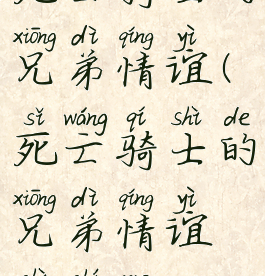 xiōng dì qíng yì
兄弟情谊(
sǐ wáng qí shì de
死亡骑士的
xiōng dì qíng yì
兄弟情谊